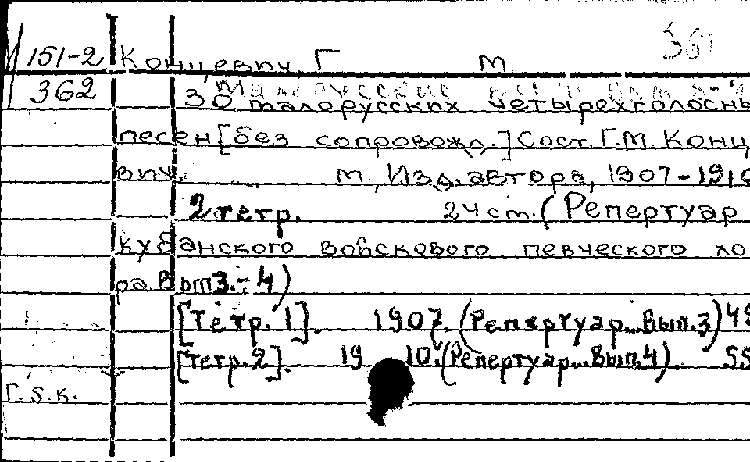 151-2 Концевич, Г. М. 361
362 30 малорусских четырехголосн
песен [без сопровожд.] Сост. Г.М. Конц
вич. М., Изд. автора, 1907-1910
2 тетр. 24 cm. (Репертуар
кубанского войскового певческого хо
ра. Вып 3.-4)
[Тетр. 1]. 1907. (Репертуар... Вып. 3) 49
[Тетр. 2]. 1910. (Репертуар... Вып. 4) 55
Г.S.К.